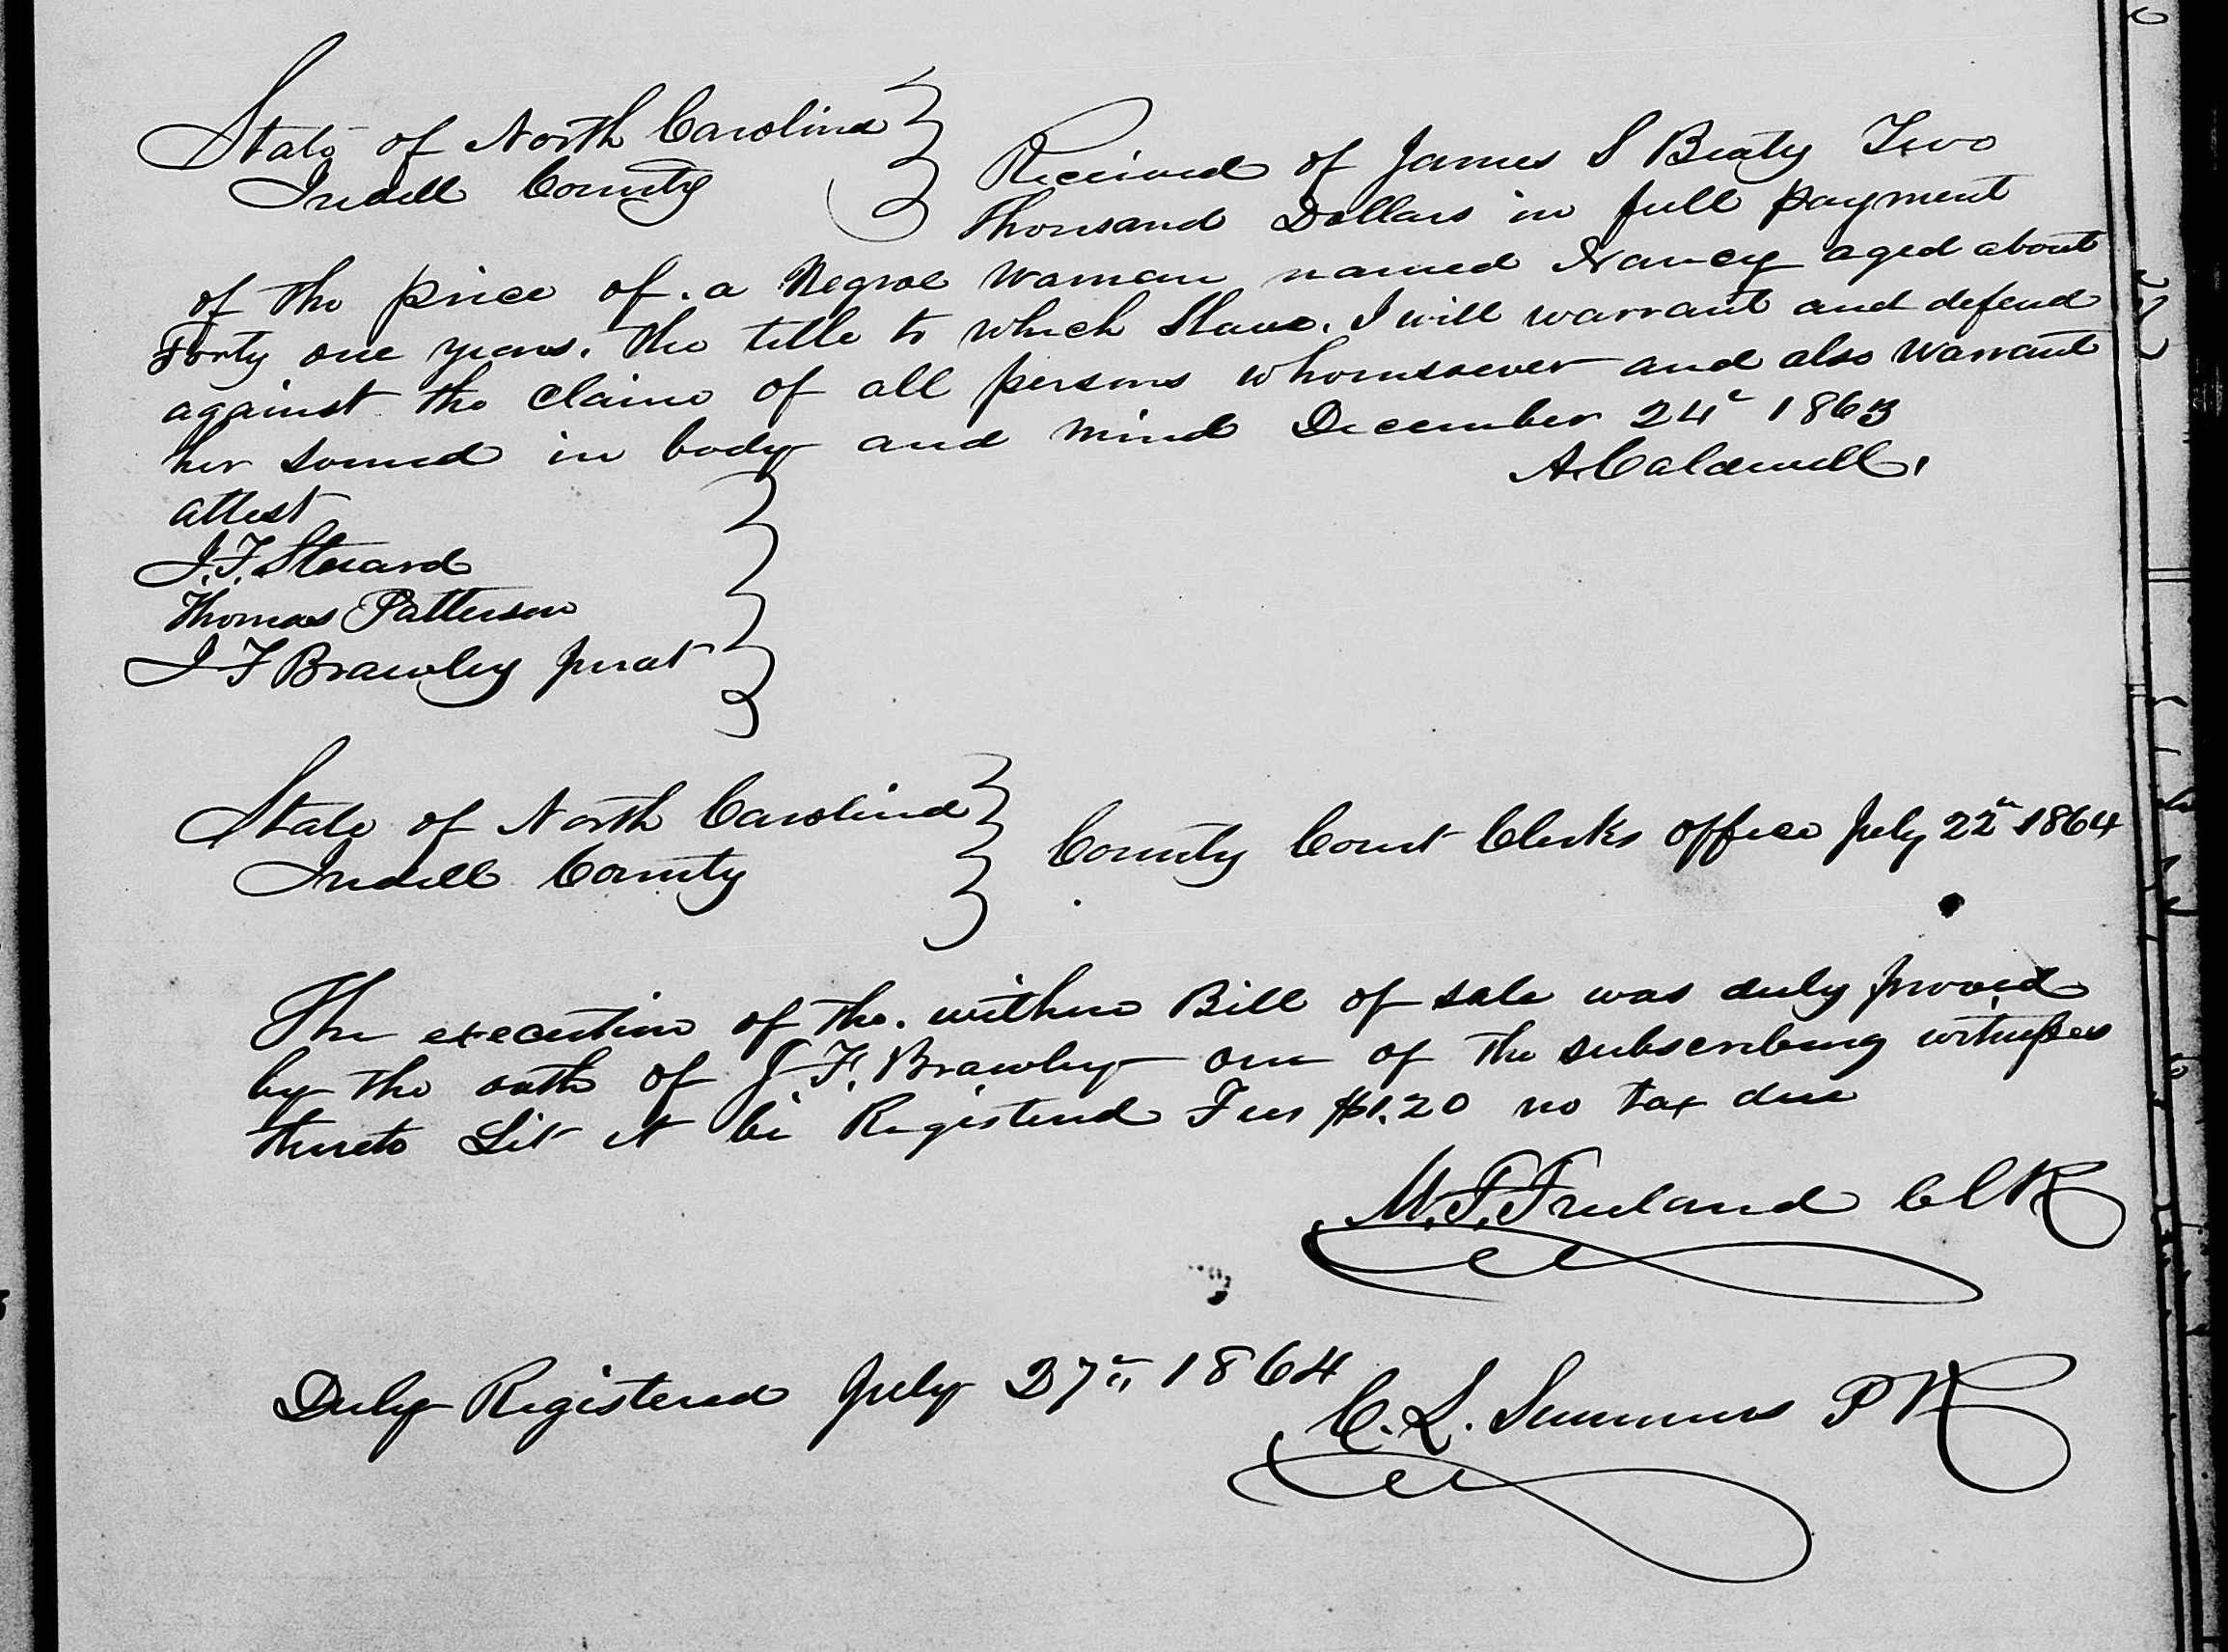 State of North Carolina
Iredell County
Received of James S Beaty Two
Thousand Dollars in full payment
of the price of a Negroe Woman named Nancy aged about
Forty one years. the title to which Slave, I will warrant and defend
against the claims of all persons whomsoever and also warrant
her sound in body and mind December 24th 1863
A. Caldwell.
attest
J. F. Steward
Thomas Patterson
J F Brawley jurat
State of North Carolina
Iredell County
County Court Clerks office July 22nd 1864
The execution of the within Bill of sale was duly proved
by the oath of J. F. Brawley one of the subscribing witnesses
thereto Let it be Registered Fees $1.20 no tax due
M. F. Freeland CClk
Duly Registered July 27th 1864
C. L. Summers P R